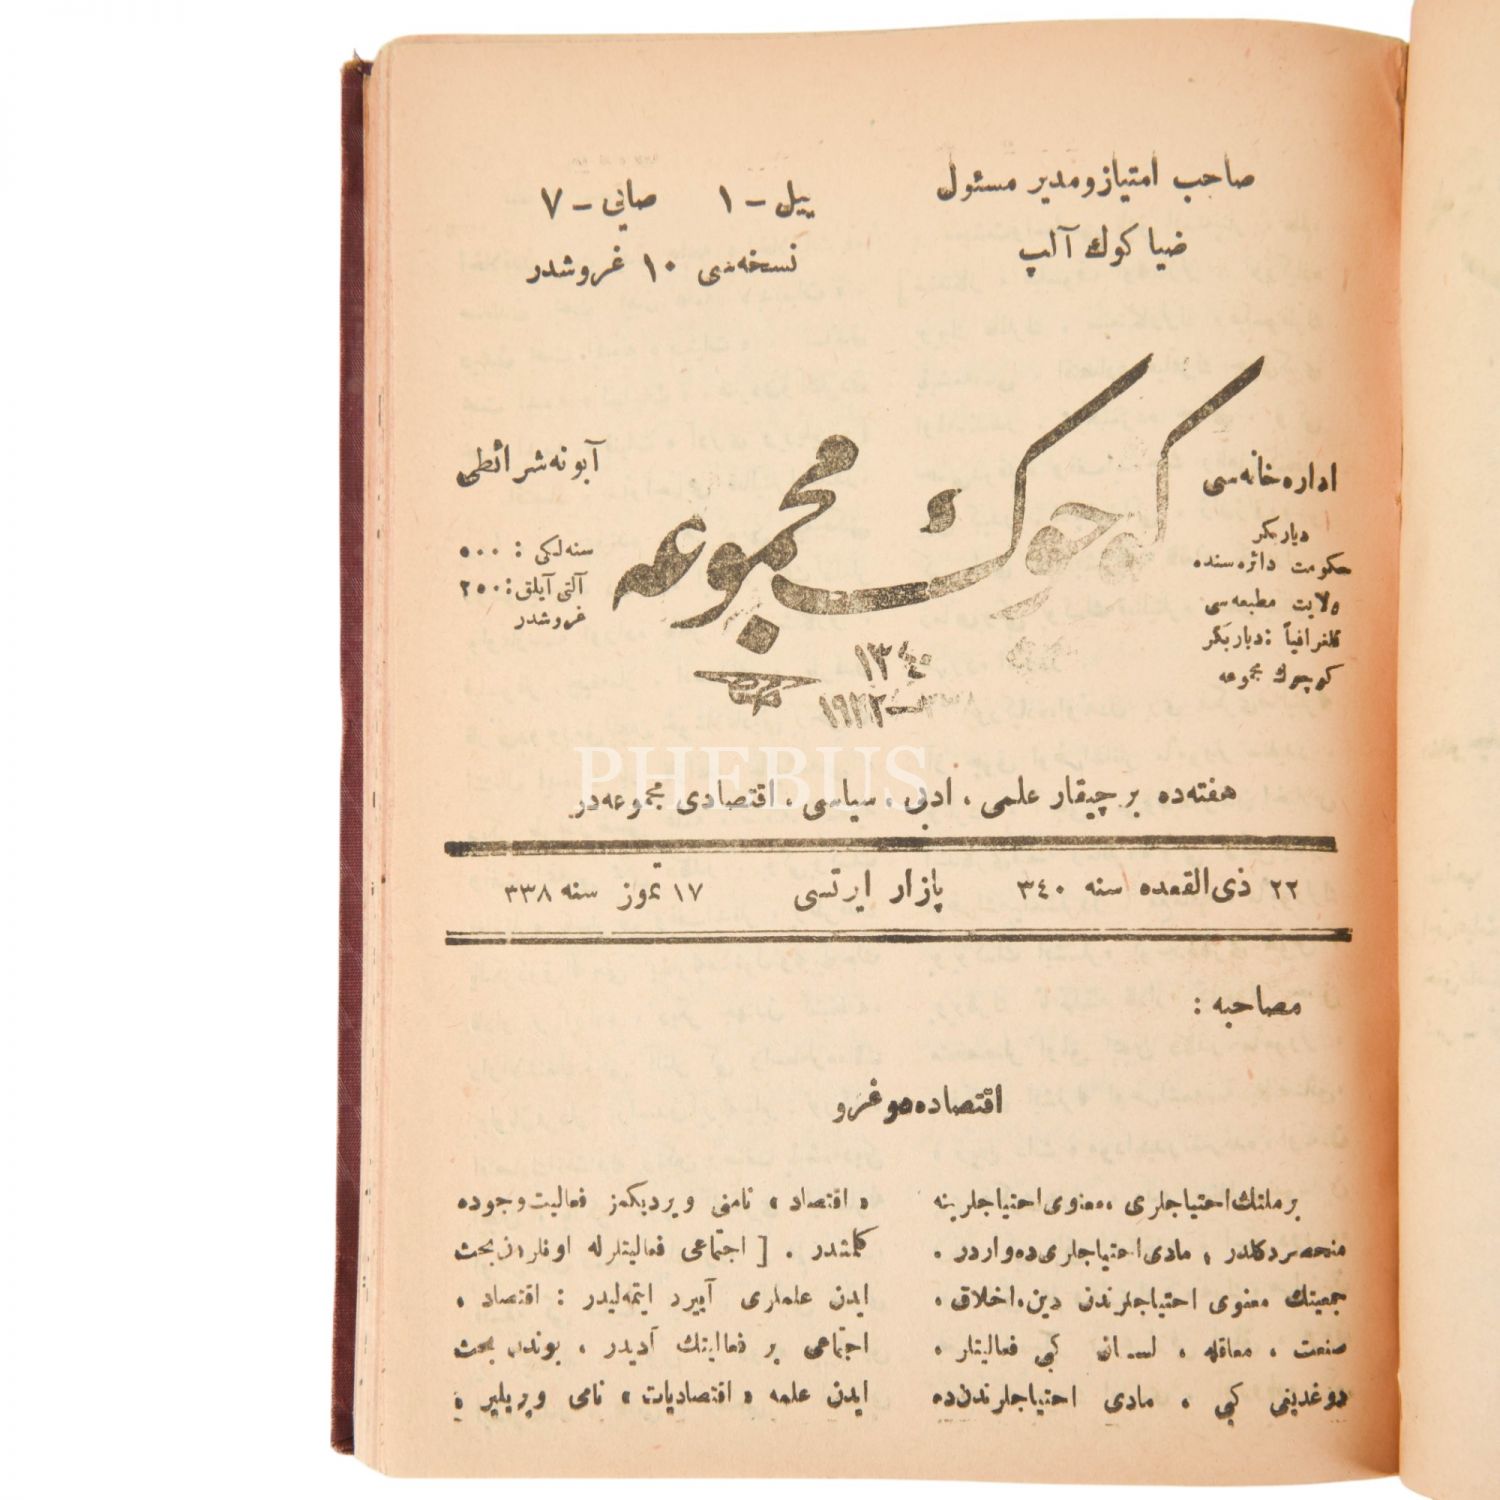 صاحب امتیاز و مدیر مسئول
ضیا کوك آلپ
ییل – ۱ صایی – ۷
نسخه‌سی ۱۰ غروشدر
کوچوک مجموعه
اداره‌خانه‌سی
دیاربکر
حکومت دائره‌سنده
ولایت مطبعه‌سی
تلغرافیاً : دیاربکر
کوچوك مجموعه
آبونه شرائطی
سنه‌لكی : ۵۰۰
آلتی آیلق : ۲۵۰
غروشدر
۱۳۴۰
PHEBUS
هفته‌ده بر چیقار علمی ، ادبی ، سیاسی ، اقتصادی مجموعه‌در
۲۲ ذی‌القعده سنه ۳۴۰ پازار ایرتسی ۱۷ تموز سنه ۳۳۸
مصاحبه :
اقتصاده دوغرو
بر ملتك احتیاجلری معنوی احتیاجلرینه
منحصر دكلدر ، مادی احتیاجلری ده واردر .
جمعیتك معنوی احتیاجلرندن دین ، اخلاق ،
صنعت ، معاقله ، لسان كبی فعالیتلر ،
دوغدیغی كبی ، مادی احتیاجلرندن ده
« اقتصاد » نامنی ویردیكمز فعالیت وجوده
كلمشدر . [ اجتماعی فعالیتلرله اونلردن بحث
ایدن علملری آییرد ایتمه‌لیدر : اقتصاد ،
اجتماعی بر فعالیتك آدیدر ، بوندن بحث
ایدن علمه « اقتصادیات » نامی ویریلیر ؛